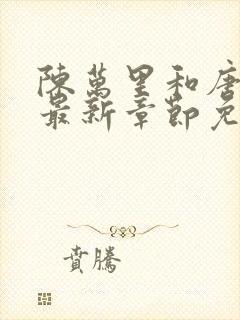 陳萬里和唐
最新章節免
賁騰